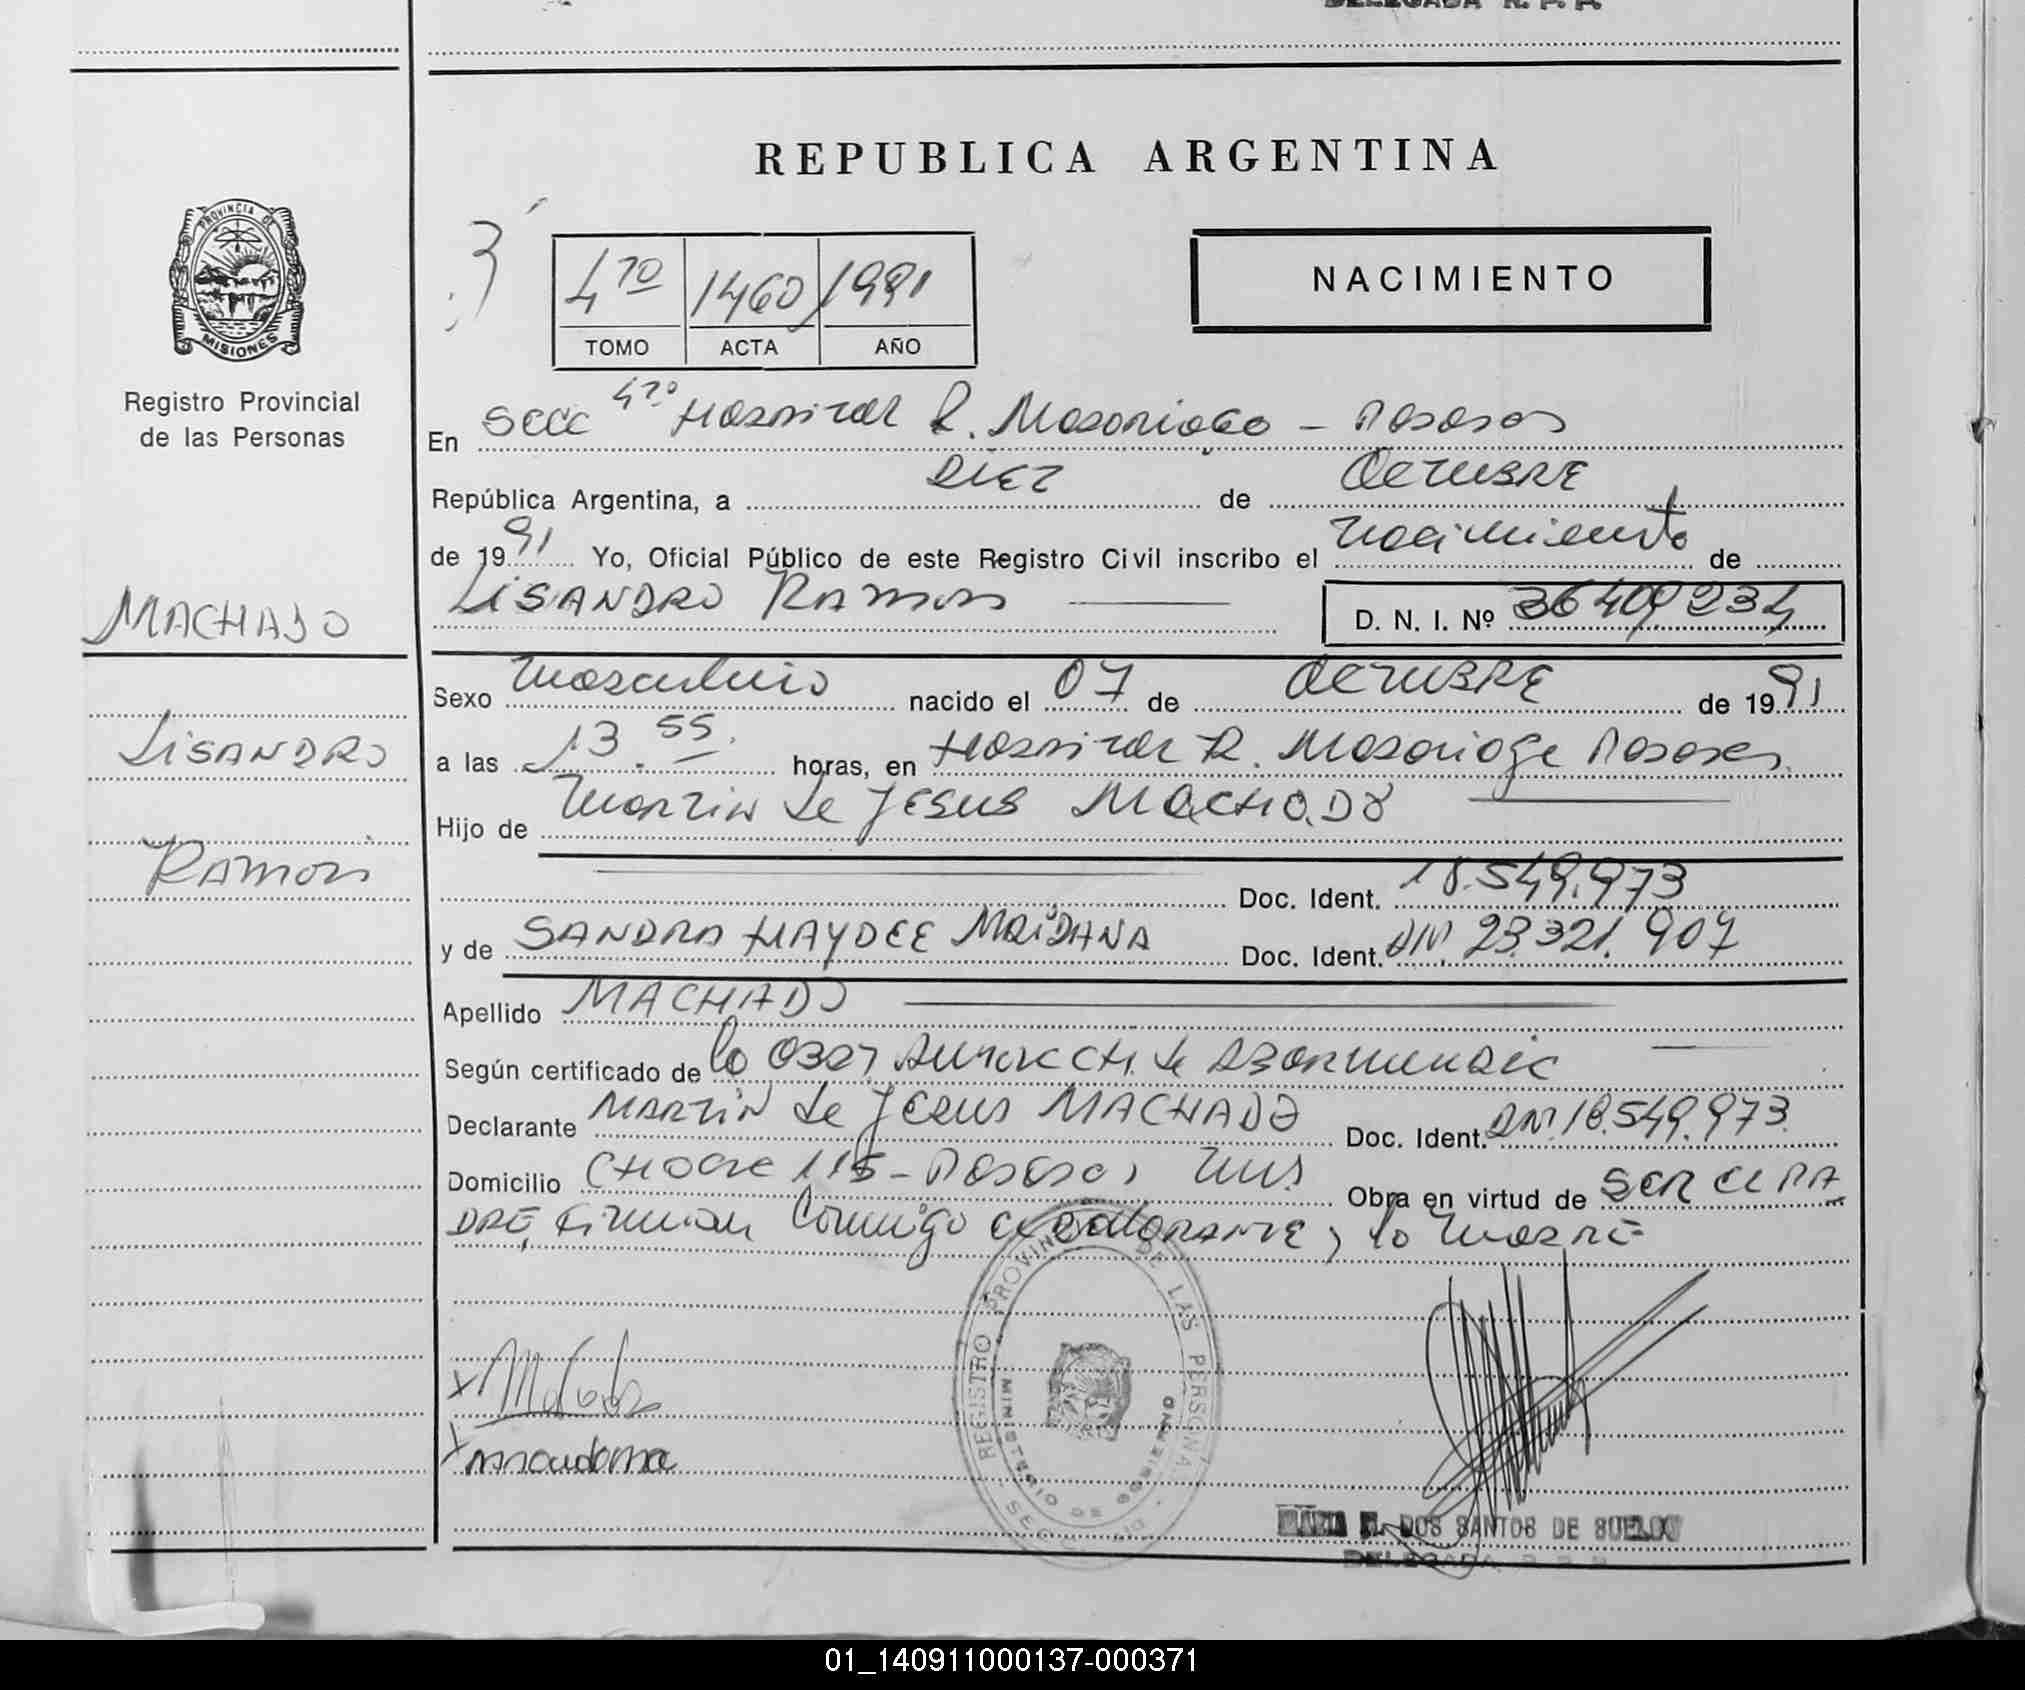 DELEGADA R. P. P.
REPUBLICA ARGENTINA
PROVINCIA DE
MISIONES
Registro Provincial
de las Personas
4to 1460 1991
TOMO ACTA AÑO
NACIMIENTO
En Secc 4ta Hospital R. Madariaga - Posadas
República Argentina, a DIEZ de OCTUBRE
de 1991 Yo, Oficial Público de este Registro Civil inscribo el Nacimiento de
LISANDRO RAMON D. N. I. Nº 36.409.234
MACHADO
LISANDRO
RAMON
Sexo Masculino nacido el 07 de OCTUBRE de 1991
a las 13.55. horas, en Hospital R. Madariaga Posadas
Hijo de Martin de JESUS MACHADO
Doc. Ident. 18.549.973
y de SANDRA HAYDEE MAIDANA Doc. Ident. DNI. 23.321.907
Apellido MACHADO
Según certificado de la Obst.
Declarante MARTIN de JESUS MACHADO Doc. Ident. DNI. 18.549.973
Domicilio 115 - Posadas Mns. Obra en virtud de SER EL PA
DRE, Firman Conmigo el declarante, la Madre
REGISTRO PROVINCIAL DE LAS PERSONAS
MINISTERIO DE GOBIERNO
DOS SANTOS DE SUELDO
DELEGADA R. P. P.
01_140911000137-000371